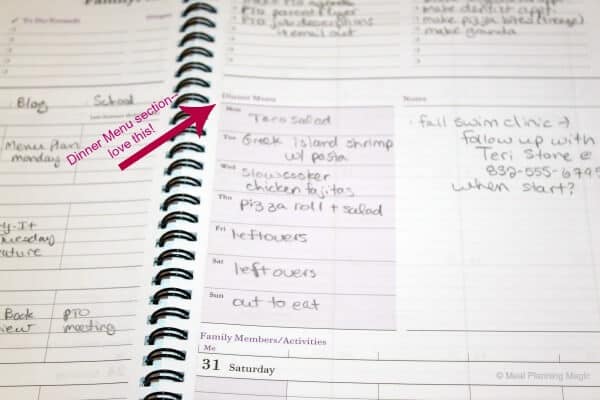 PTO parent flyer
PTO job descriptions
email out
make pizza bites (freeze)
make granola
Blog
School
Menu Plan
monday
Book
PTO
meeting
Dinner Menu section--
love this!
Dinner Menu
Mon
Taco salad
Tue
Greek island shrimp
w/ pasta
Wed
slowcooker
chicken fajitas
Thu
pizza roll + salad
Fri
leftovers
Sat
leftovers
Sun
out to eat
Notes
fall swim clinic →
follow up with
Teri Stare @
832-555-6795
when start?
Family Members/Activities
Me
31 Saturday
© Meal Planning Magic